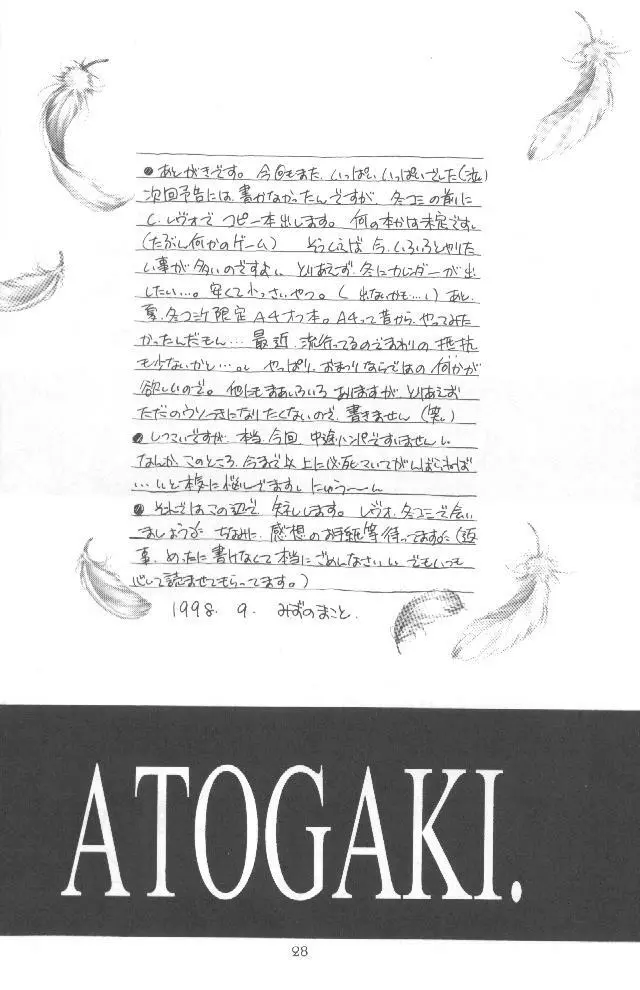 ●あとがきです。今回もまた、いっぱいいっぱいでした(泣)
次回予告には、書かなかったんですが、冬コミの前に
C.レヴォで コピー本出します。何の本かは未定です。
(たぶん何かのゲーム) そういえば 今、いろいろとやりた
い事が多いのですよ。とりあえず、冬にカレンダーが出
したい…。安くて小っさいやつ。(出ないかも…)あと、
夏、冬コミケ限定 A4オフ本。A4って昔から、やってみた
かったんだもん… 最近、流行ってるのでまわりの抵抗
も少ないかと…。やっぱり、おまつりならではの何かが
欲しいので。他にもまあいろいろ ありますが、とりあえず
ただのウソつきになりたくないので、書きません(笑)
●しつこいですが、本当、今回、中途ハンパですいません。
なんか、このところ、今まで以上に
…いと本気に悩んでます。にゅう〜〜ん
●それではこの辺で、失礼します。レヴォ、冬コミで会い
ましょう ちなみに、感想のお手紙等待ってます(返
事、めったに書けなくて本当にごめんなさい。でもいつも
心して読ませてもらってます。)
1998. 9. みずのまこと.
ATOGAKI.
28